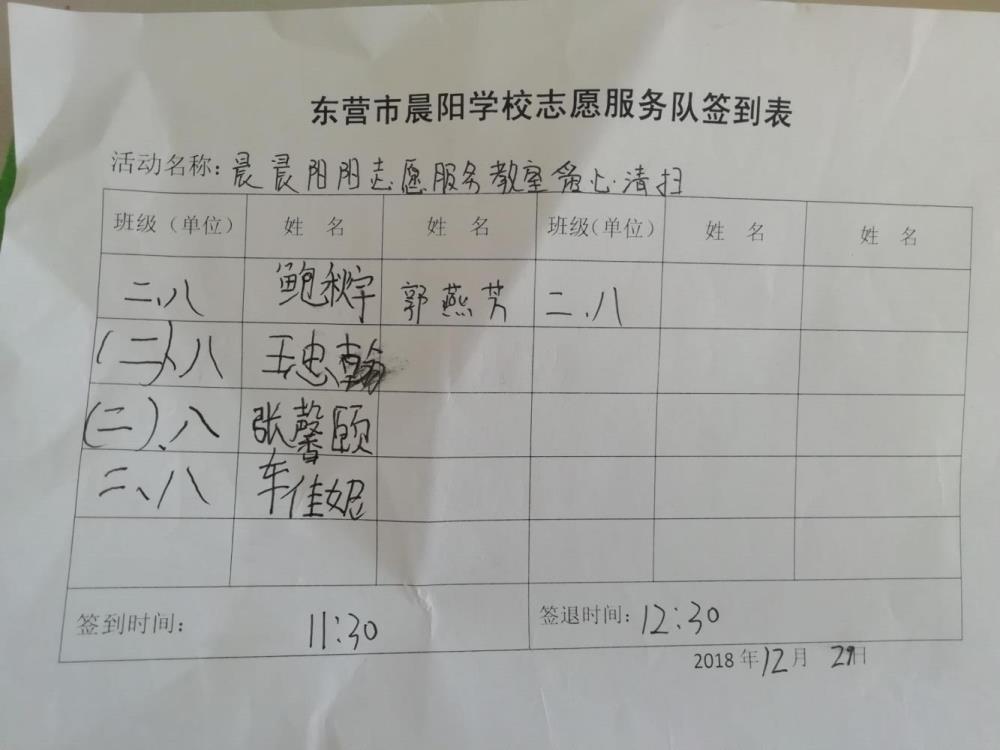 东营市晨阳学校志愿服务队签到表
活动名称：晨晨阳阳志愿服务教室 心 清扫
班级（单位） 姓 名 姓 名 班级（单位） 姓 名 姓 名
二、八 鲍秋宇 郭燕芳 二、八
（二）、八 王忠翰
（二）、八 张馨颐
二、八 车佳妮
签到时间： 11:30 签退时间： 12:30
2018 年 12 月 29 日